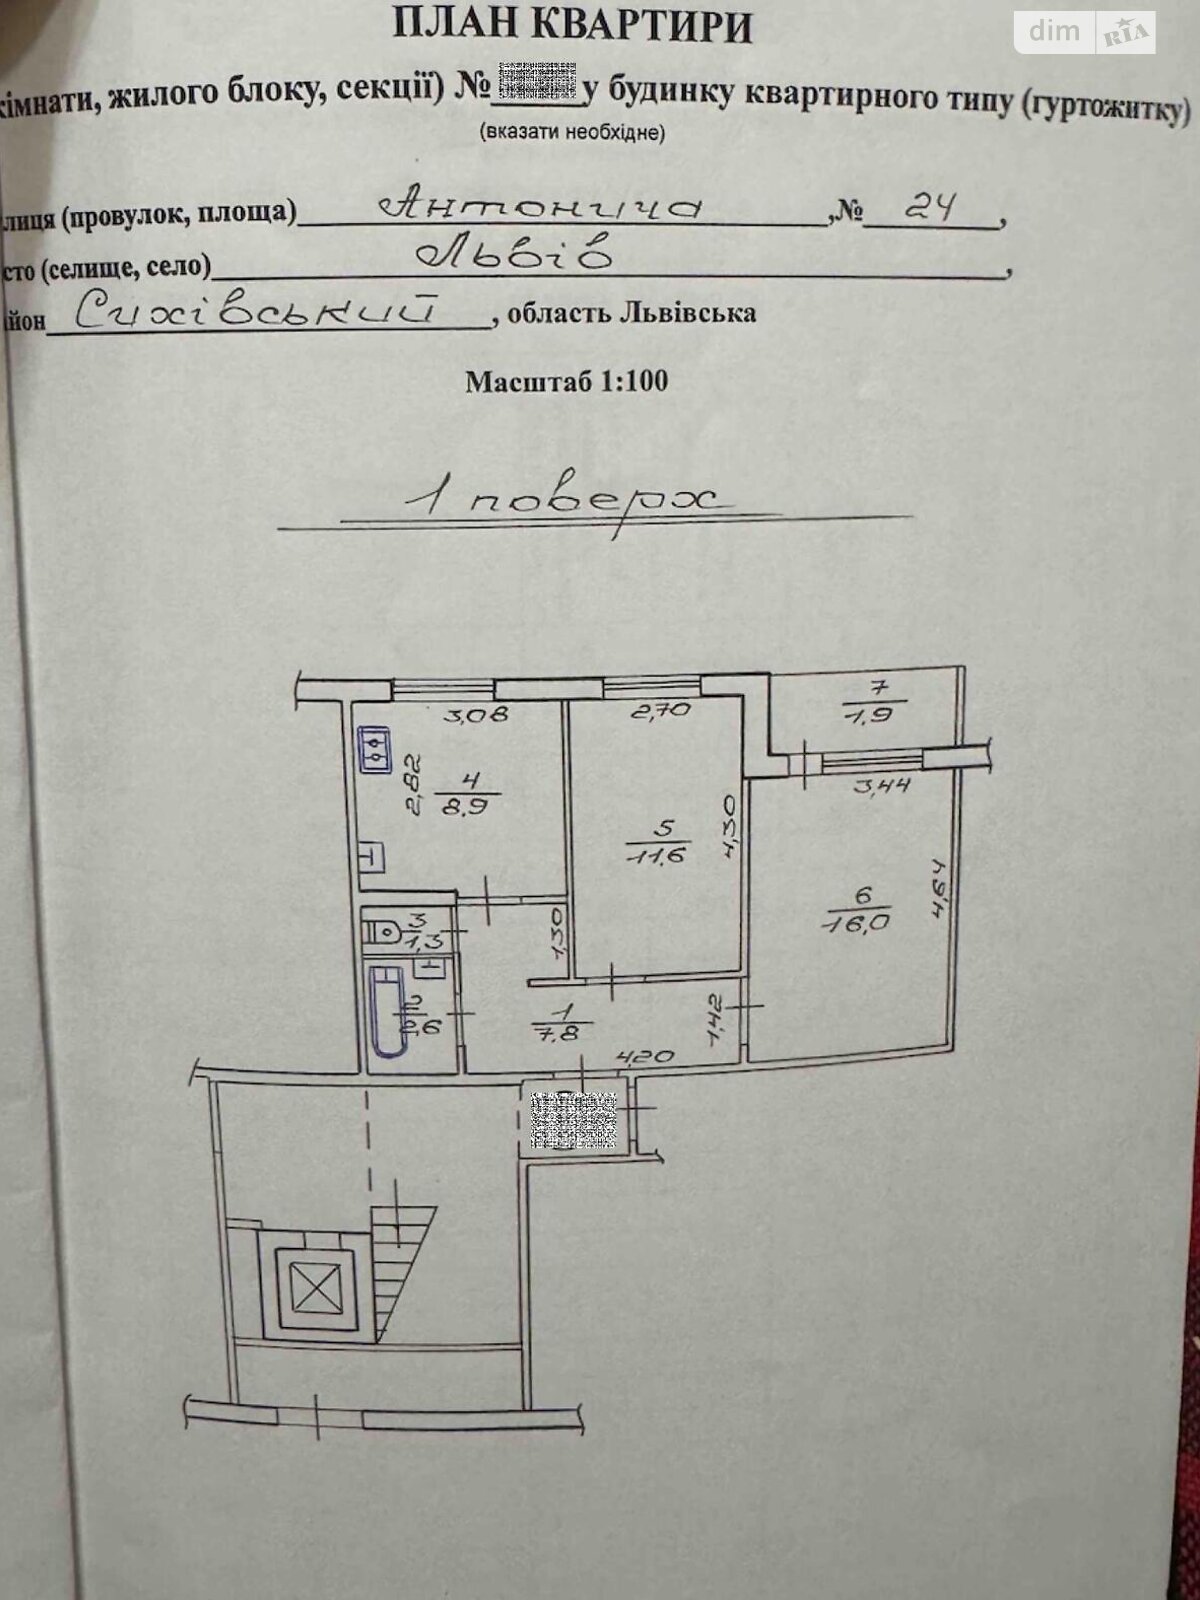 ПЛАН КВАРТИРИ
dim RIA
кімнати, жилого блоку, секції) № у будинку квартирного типу (гуртожитку)
(вказати необхідне)
лиця (провулок, площа) Антонича, № 24,
сто (селище, село) Львів,
йон Сихівський, область Львівська
Масштаб 1:100
1 поверх
7
1,9
3,08
2,70
3,44
2,82
4
8,9
5
11,6
4,30
6
16,0
4,94
3
1,3
1,30
2
2,6
1
7,8
1,42
4,20